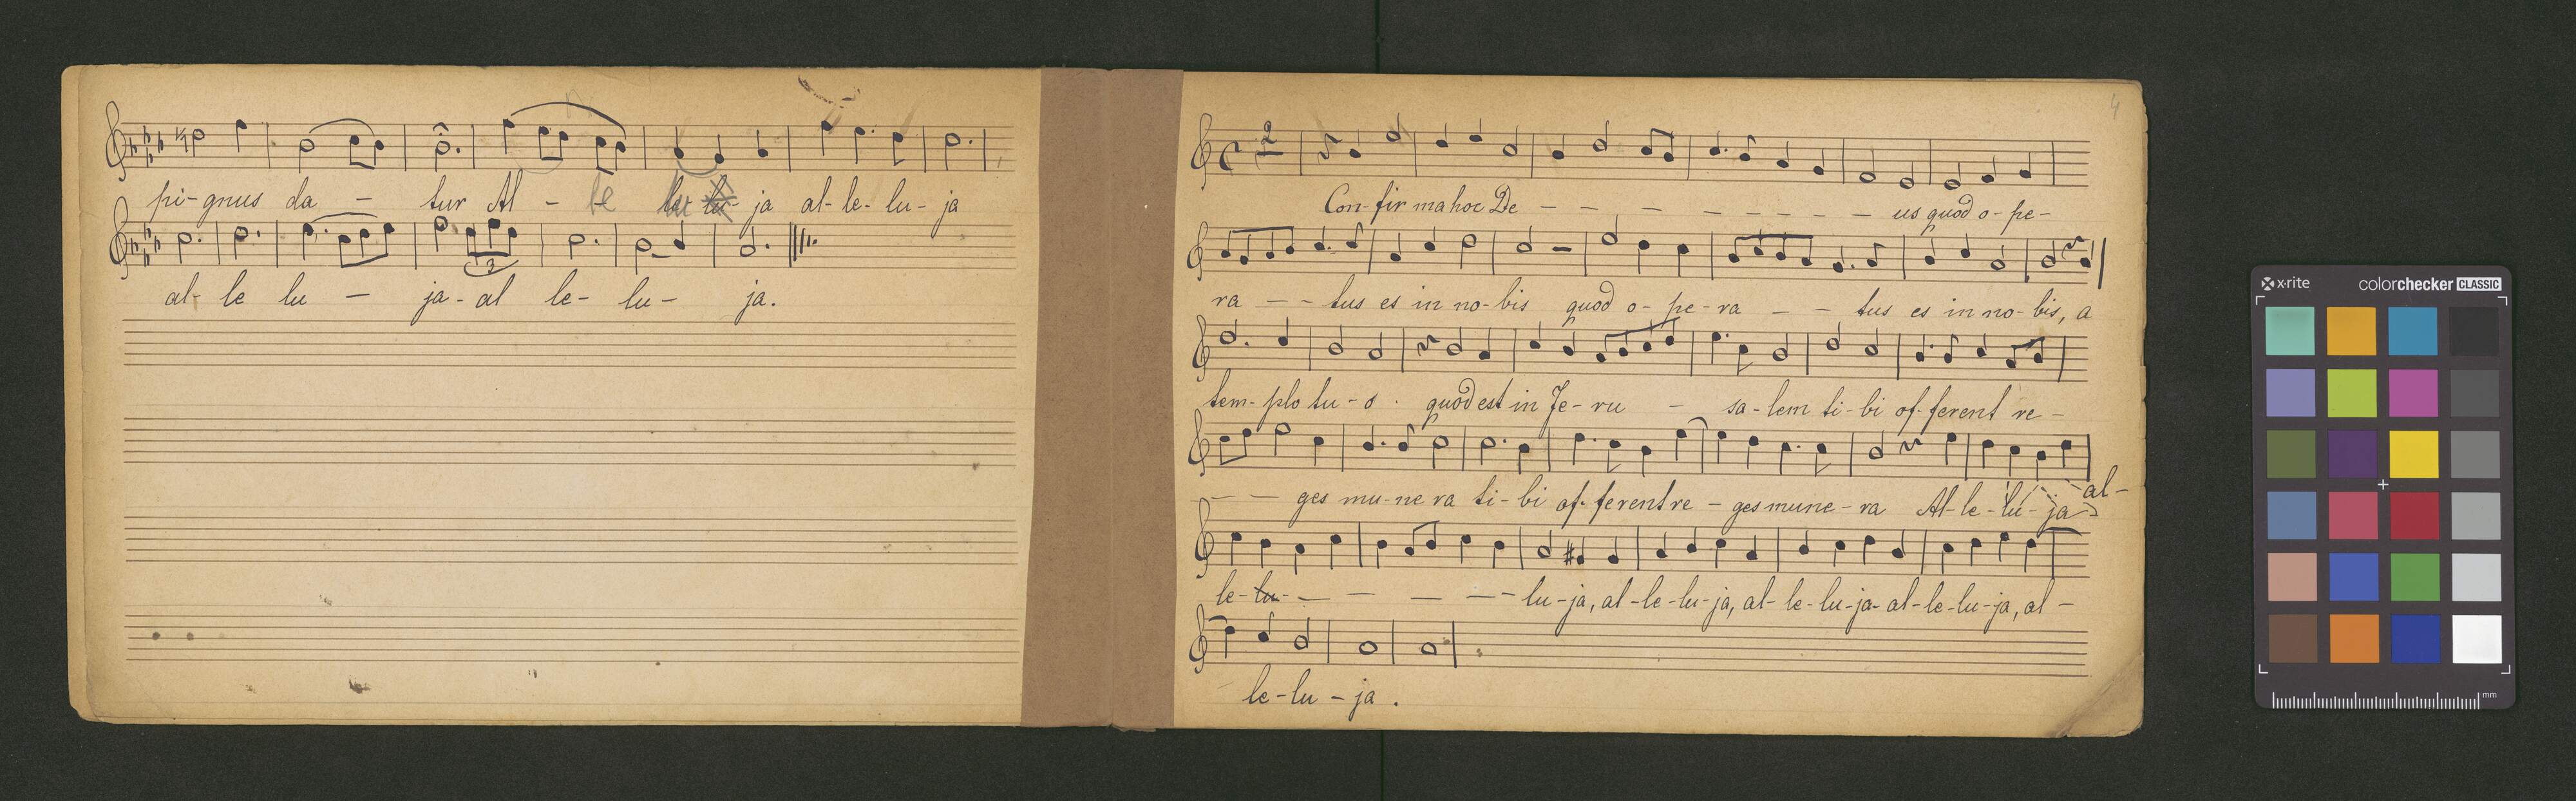 pi-gnus da - tur Al - le lu ja al-le-lu-ja
3
al- le lu - ja-al le- lu- ja.
4
2
Con-fir ma hoc De - - - - - - - - - us quod o-pe-
ra - - tus es in no-bis quod o-pe-ra - - tus es in no-bis, a
tem-plo tu-o. quod est in Je-ru - sa-lem ti-bi of-ferent re-
- - ges mu-ne ra ti-bi of-ferent re-ges mune-ra Al-le-lu-ja al-
le-lu- - - - - - lu-ja, al-le-lu-ja, al-le-lu-ja-al-le-lu-ja, al-
le-lu-ja.
x-rite colorchecker CLASSIC
mm